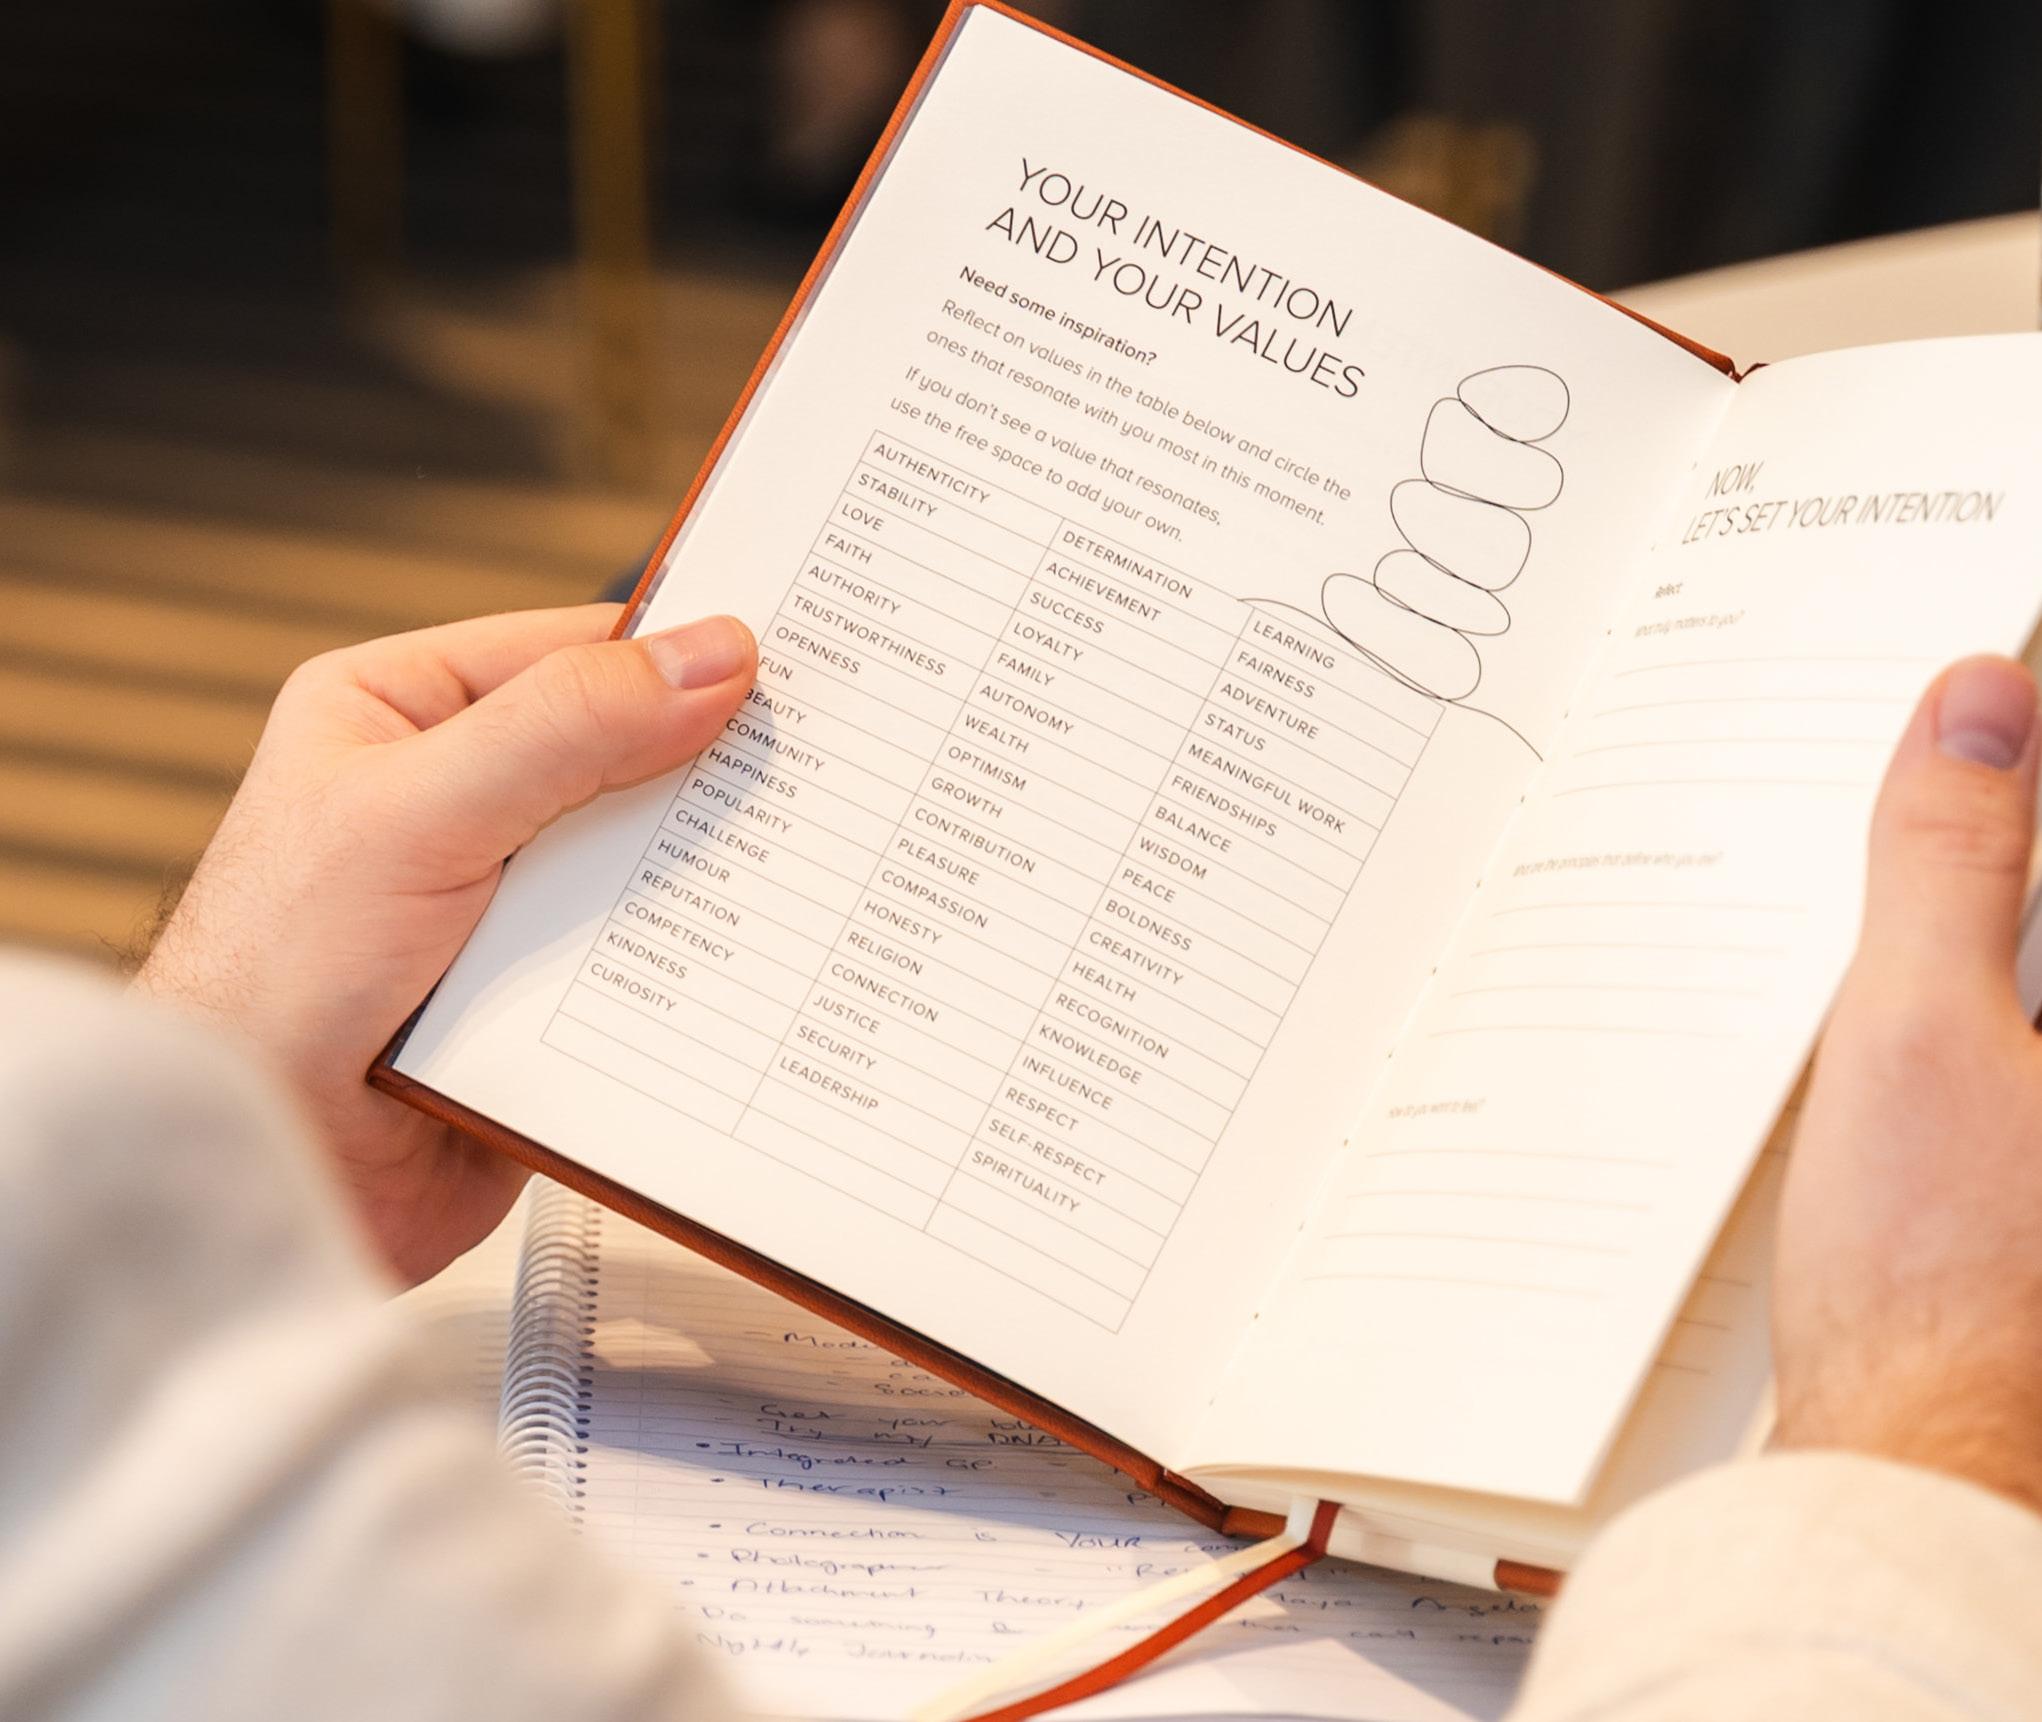 YOUR INTENTION
AND YOUR VALUES
Need some inspiration?
Reflect on values in the table below and circle the
ones that resonate with you most in this moment.
If you don't see a value that resonates,
use the free space to add your own.
AUTHENTICITY
STABILITY
LOVE
FAITH
AUTHORITY
TRUSTWORTHINESS
OPENNESS
FUN
BEAUTY
COMMUNITY
HAPPINESS
POPULARITY
CHALLENGE
HUMOUR
REPUTATION
COMPETENCY
KINDNESS
CURIOSITY
DETERMINATION
ACHIEVEMENT
SUCCESS
LOYALTY
FAMILY
AUTONOMY
WEALTH
OPTIMISM
GROWTH
CONTRIBUTION
PLEASURE
COMPASSION
HONESTY
RELIGION
CONNECTION
JUSTICE
SECURITY
LEADERSHIP
LEARNING
FAIRNESS
ADVENTURE
STATUS
MEANINGFUL WORK
FRIENDSHIPS
BALANCE
WISDOM
PEACE
BOLDNESS
CREATIVITY
HEALTH
RECOGNITION
KNOWLEDGE
INFLUENCE
RESPECT
SELF-RESPECT
SPIRITUALITY
NOW,
LET'S SET YOUR INTENTION
Reflect:
What truly matters to you?
What are the principles that define who you are?
How do you want to feel?
Get your
Try my DNA
• Integrated GP
• Therapist
• Connection is YOUR
• Photographer
• Attachment Theory
Do something
Nightly